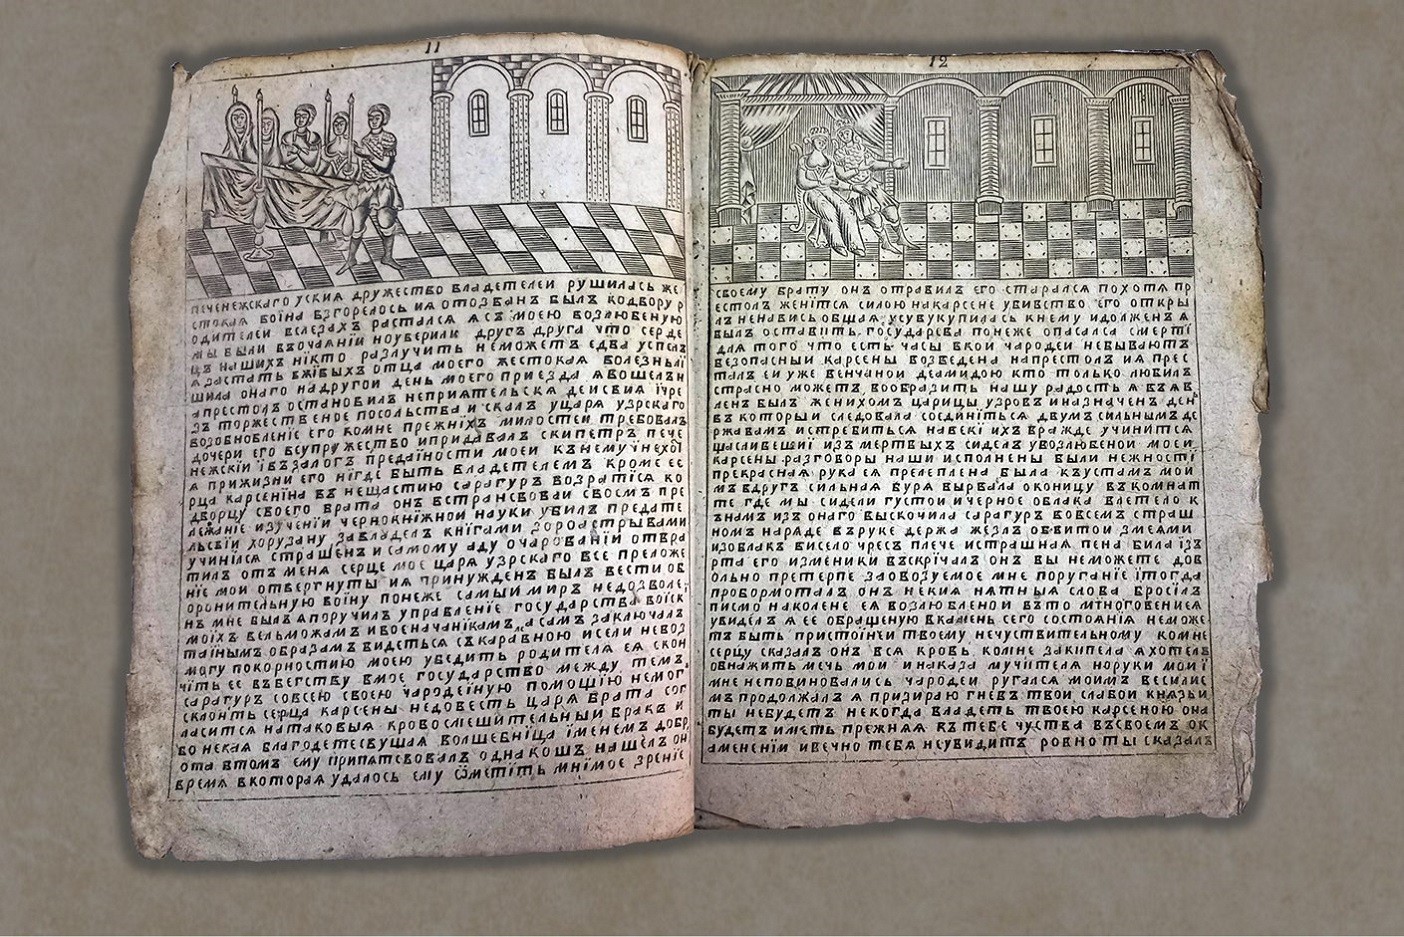 11
печенежскаго ускиѧ дружество владетелеи рушилась же
стокая воїна взгорелось иѧ отозванъ былъ кодвору р
одителеи вслезахъ растался ѧсъ моею возлюбеную
мы были въочаяніи ноуверили другъ друга что серде
цъ нашихъ нікто разлучить неможетъ едва успелъ
ѧ застать вживыхъ отца моего жестокая болезньлі
шила онаго надругои день моего приезда ѧвошелъ н
а престолъ остановилъ неприятельскѧ деиствия ічре
зъ торжественое посольства искалъ уцаря узрскаго
возобновленіе его комне прежніхъ милостеи требовалъ
дочери его всупружество ипридавалъ скипетръ пече
нежскїи ївъзалогъ преданости моеи къ нему нехотї
ѧ прижизни его нїгде быть владетелемъ кроме ее
рца карсеніна въ нещастию сарагуръ возратїсѧ ко
дворцу своего брата онъ встрансвоваи своемъ пре
лежание изученїи чернокнїжнои науки убилъ предате
льсвїи хорузану завладелъ кнїгами зороастрывами
учинїлся страшенъ исамому аду очарованїи отвра
тилъ отъ меня серце мое царя узрскаго все преложе
нїе мои отвергнуты иѧ принужденъ былъ вести об
оронительную воїну понеже самый миръ недозволе
нъ мне былъ ѧпоручилъ управленїе государства воїск
моїхъ вельможамъ ивосначанїкамъ асамъ заключалъ
таїнымъ образамъ видеться съкаравною исели невоз
магу покорностию моею убедить родителя еѧ скон
чїть ее въбегству вмое государство между темъ
сарагуръ совсею своею чародеїную помощїю немог
склонїть серца карсены недовесть царя брата сог
ласится натаковыя кровосмешїтельныи бракъ и
во некая благодетесвущая волшебнїца їменемъ добр
ота втомъ ему припятсвовалъ однакошъ нашелъ он
время вкоторая удалось ему ѿметїть мнїмое зренїе
12
своему брату онъ отравилъ его старался похотя пр
естолъ женїтся силою накарсене убивство его откры
лъ ненависъ общая усувукупилась кнему идолженъ ѧ
былъ оставить государева понеже опасался смертї
для того что есть часы вкои чародеи небываютъ
безопасныи карсены возведена напрестолъ иѧ прес
талъ еи уже венчанои деамидою кто только любилъ
страсно можетъ вообразить нашу радость ѧ бъяв
ленъ былъ женихомъ царицы узровъ иназначен ден
въ которыи следовала соединїться двумъ сильнымъ де
ржавамъ истребиться навекї ихъ вражде учинится
щасливешиї изъ мертвыхъ сиделъ увозлюбенои моеи
карсены разговоры наши исполнены были нежностї
прекрасная рука еѧ прелеплена была къустамъ мои
мъ вдругъ сильная буря вырвала оконицу въкомнат
те где мы сидели густои ичерное облака влетело к
ънамъ изъ онаго выскочила сарагуръ вовсемъ страш
номъ наряде въруке держа жезлъ обвитои змеями
изоблакъ висело чресъ плече истрашная пена била їзъ
рта его изменики въскрїчалъ онъ вы неможете дов
ольно претерпе заовозуемое мне поруганїе їтогда
пробормоталъ онъ некия нѧтныя слова бросїлъ
писмо наколене еѧ возлюбленои въто мгноговения
увиделъ ѧ ее обращеную вкамень сего состоянїя неможе
тъ быть пристоїнеи твоему нечуствительному комне
серцу сказалъ онъ вся кровь комне закипела ѧхотелъ
обнажить мечь мои инаказа мучїтеля норуки мои ї
мне неповиновались чародеи ругался моимъ бесилис
мъ продолжалъ ѧ призираю гневъ твои слабои князьи
ты небудетъ некогда владеть твоею карсеною она
будетъ иметь прежняя къ тебе чуства въсвоемъ ок
аменении ивечно тебя неувидитъ ровно ты сказалъ